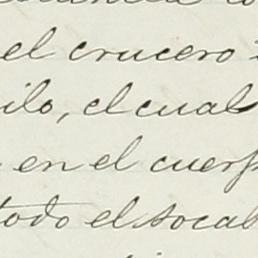 el crucero
ilo, el cual
en el cuerp
todo el socab